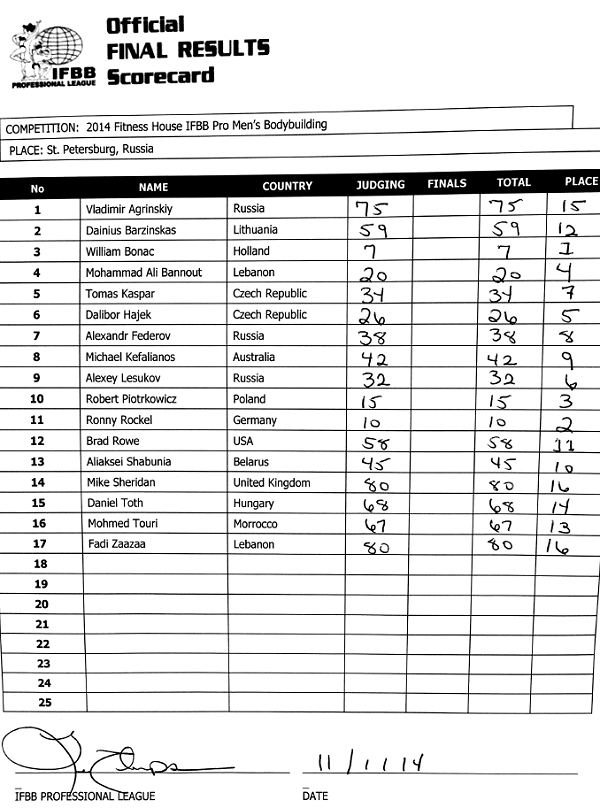 Official
FINAL RESULTS
Scorecard
IFBB
PROFESSIONAL LEAGUE
COMPETITION: 2014 Fitness House IFBB Pro Men's Bodybuilding
PLACE: St. Petersburg, Russia
No NAME COUNTRY JUDGING FINALS TOTAL PLACE
1 Vladimir Agrinskiy Russia 75 75 15
2 Dainius Barzinskas Lithuania 59 59 12
3 William Bonac Holland 7 7 1
4 Mohammad Ali Bannout Lebanon 20 20 4
5 Tomas Kaspar Czech Republic 34 34 7
6 Dalibor Hajek Czech Republic 26 26 5
7 Alexandr Federov Russia 38 38 8
8 Michael Kefalianos Australia 42 42 9
9 Alexey Lesukov Russia 32 32 6
10 Robert Piotrkowicz Poland 15 15 3
11 Ronny Rockel Germany 10 10 2
12 Brad Rowe USA 58 58 11
13 Aliaksei Shabunia Belarus 45 45 10
14 Mike Sheridan United Kingdom 80 80 16
15 Daniel Toth Hungary 68 68 14
16 Mohmed Touri Morrocco 67 67 13
17 Fadi Zaazaa Lebanon 80 80 16
18
19
20
21
22
23
24
25
11/1/14
IFBB PROFESSIONAL LEAGUE DATE